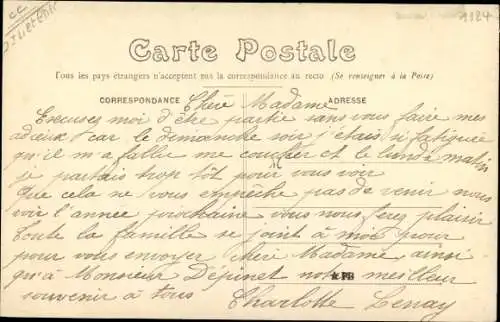 1124
Carte Postale
Tous les pays étrangers n'acceptent pas la correspondance au recto (Se renseigner à la Poste)
CORRESPONDANCE Chère Madame ADRESSE
Excusez moi d'être partie sans vous faire mes
adieux car le dimanche soir j'étais si fatiguée
qu'il m'a fallu me coucher et le lundi matin
je partais trop tôt pour vous voir
que cela ne vous empêche pas de venir nous
voir l'année prochaine vous nous ferez plaisir
toute la famille se joint à moi pour
pour vous envoyer chère Madame ainsi
qu'à Monsieur Dépinet notre meilleur
PB
souvenir à tous Charlotte Lenay